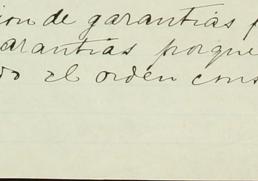 ion de garantias p
arantias porque
do el orden cons